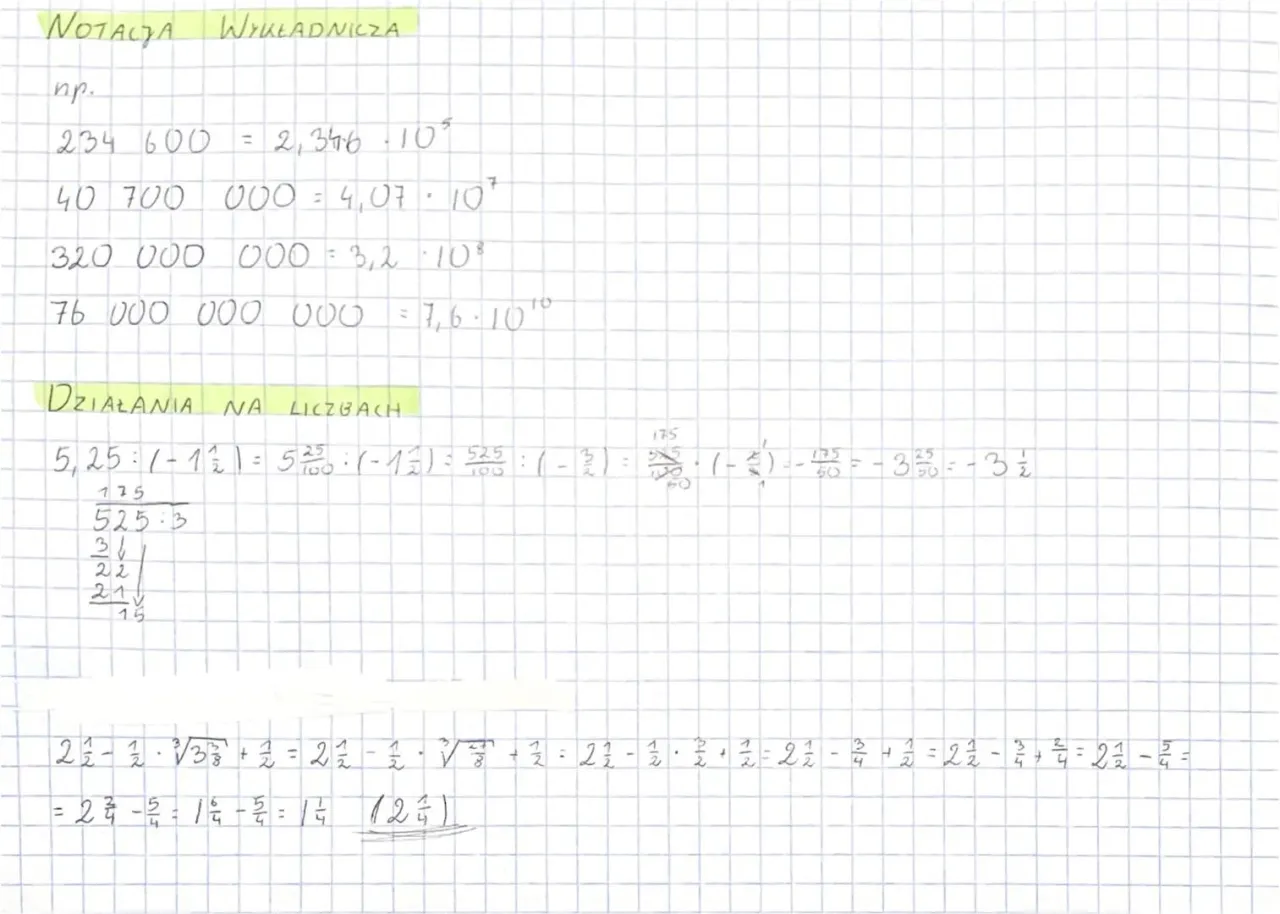 NOTACJA WYKŁADNICZA
np.
234 600 = 2,346 · 10⁵
40 700 000 = 4,07 · 10⁷
320 000 000 = 3,2 · 10⁸
76 000 000 000 = 7,6 · 10¹⁰
DZIAŁANIA NA LICZBACH
5,25 : (-1 1/2) = 5 25/100 : (-1 1/2) = 525/100 : (- 3/2) = 175 525/100 50 · (- 1 2/3 1) = - 175/50 = - 3 25/50 = - 3 1/2
175
525 : 3
3
22
21
15
2 1/2 - 1/2 · ∛(3 3/8) + 1/2 = 2 1/2 - 1/2 · ∛(27/8) + 1/2 = 2 1/2 - 1/2 · 3/2 + 1/2 = 2 1/2 - 3/4 + 1/2 = 2 1/2 - 3/4 + 2/4 = 2 1/2 - 5/4 =
= 2 2/4 - 5/4 = 1 6/4 - 5/4 = 1 1/4 (2 1/4)